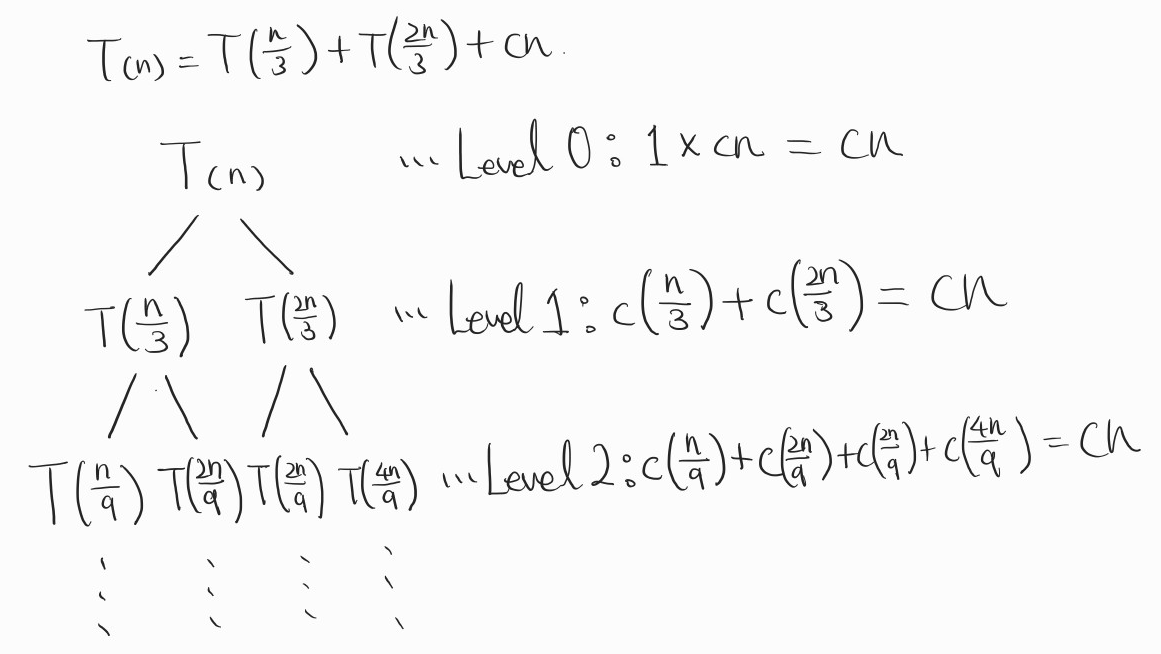 T(n) = T(n/3) + T(2n/3) + cn.
T(n) ... Level 0: 1 × cn = cn
T(n/3) T(2n/3) ... Level 1: c(n/3) + c(2n/3) = cn
T(n/9) T(2n/9) T(2n/9) T(4n/9) ... Level 2: c(n/9) + c(2n/9) + c(2n/9) + c(4n/9) = cn